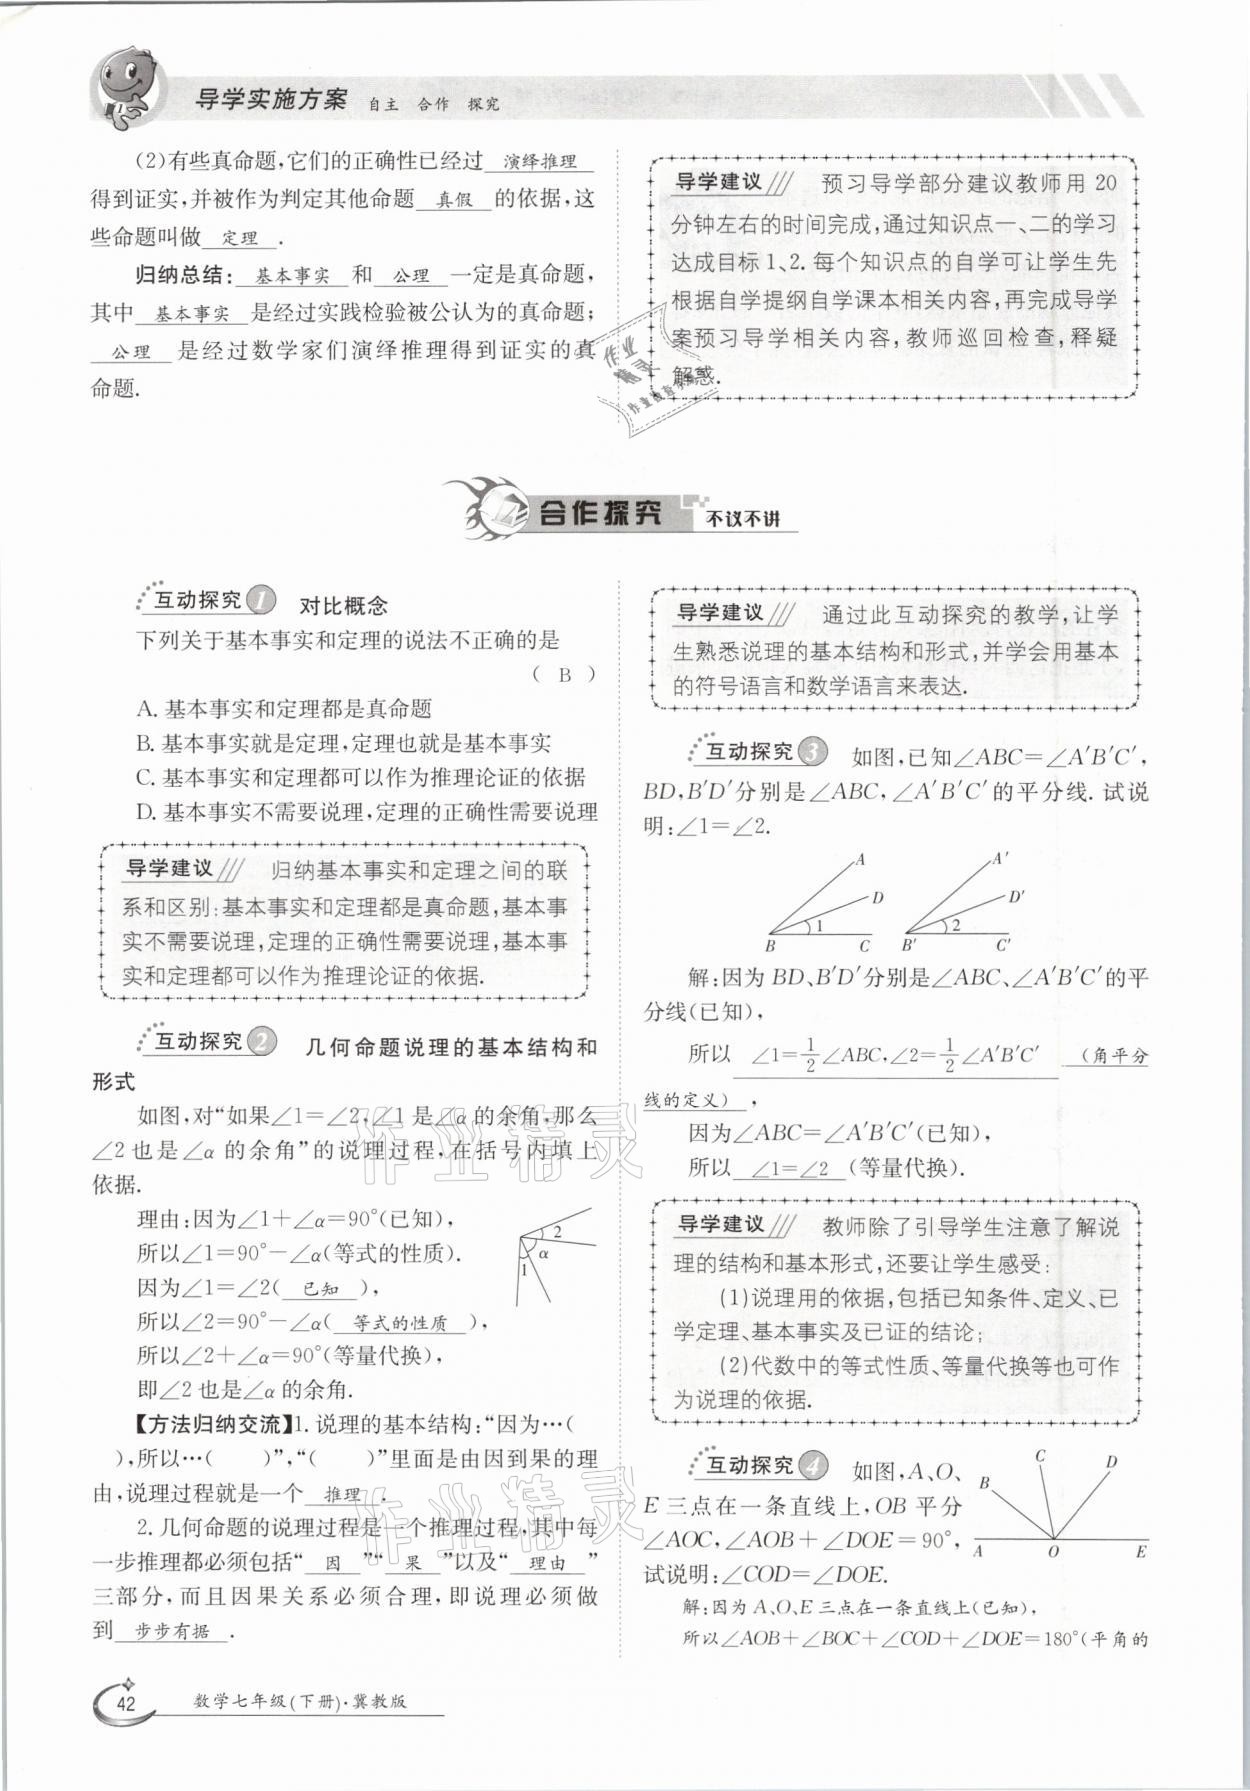 导学实施方案 自主 合作 探究
(2)有些真命题,它们的正确性已经过 演绎推理
得到证实,并被作为判定其他命题 真假 的依据,这
些命题叫做 定理 .
归纳总结: 基本事实 和 公理 一定是真命题,
其中 基本事实 是经过实践检验被公认为的真命题;
公理 是经过数学家们演绎推理得到证实的真
命题.
导学建议 预习导学部分建议教师用 20
分钟左右的时间完成,通过知识点一、二的学习
达成目标 1、2. 每个知识点的自学可让学生先
根据自学提纲自学课本相关内容,再完成导学
案预习导学相关内容,教师巡回检查,释疑
解惑.
合作探究 不议不讲
互动探究 1 对比概念
下列关于基本事实和定理的说法不正确的是
( B )
A. 基本事实和定理都是真命题
B. 基本事实就是定理,定理也就是基本事实
C. 基本事实和定理都可以作为推理论证的依据
D. 基本事实不需要说理,定理的正确性需要说理
导学建议 归纳基本事实和定理之间的联
系和区别:基本事实和定理都是真命题,基本事
实不需要说理,定理的正确性需要说理,基本事
实和定理都可以作为推理论证的依据.
互动探究 2 几何命题说理的基本结构和
形式
如图,对“如果∠1=∠2,∠1 是∠α 的余角,那么
∠2 也是∠α 的余角”的说理过程,在括号内填上
依据.
理由:因为∠1+∠α=90°(已知),
所以∠1=90°-∠α(等式的性质).
因为∠1=∠2( 已知 ),
所以∠2=90°-∠α( 等式的性质 ),
所以∠2+∠α=90°(等量代换),
即∠2 也是∠α 的余角.
2
α
1
【方法归纳交流】1. 说理的基本结构:“因为…(
),所以…( )”,“( )”里面是由因到果的理
由,说理过程就是一个 推理 .
2. 几何命题的说理过程是一个推理过程,其中每
一步推理都必须包括“ 因 ”“ 果 ”以及“ 理由 ”
三部分,而且因果关系必须合理,即说理必须做
到 步步有据 .
导学建议 通过此互动探究的教学,让学
生熟悉说理的基本结构和形式,并学会用基本
的符号语言和数学语言来表达.
互动探究 3 如图,已知∠ABC=∠A′B′C′,
BD,B′D′分别是∠ABC,∠A′B′C′的平分线. 试说
明:∠1=∠2.
A D 1 B C
A′ D′ 2 B′ C′
解:因为 BD、B′D′分别是∠ABC、∠A′B′C′的平
分线(已知),
所以 ∠1=1/2∠ABC,∠2=1/2∠A′B′C′ (角平分
线的定义) ,
因为∠ABC=∠A′B′C′(已知),
所以 ∠1=∠2 (等量代换).
导学建议 教师除了引导学生注意了解说
理的结构和基本形式,还要让学生感受:
(1)说理用的依据,包括已知条件、定义、已
学定理、基本事实及已证的结论;
(2)代数中的等式性质、等量代换等也可作
为说理的依据.
互动探究 4 如图,A、O、
E 三点在一条直线上,OB 平分
∠AOC,∠AOB+∠DOE=90°,
试说明:∠COD=∠DOE.
B C D
A O E
解:因为 A、O、E 三点在一条直线上(已知),
所以∠AOB+∠BOC+∠COD+∠DOE=180°(平角的
42 数学七年级(下册)·冀教版
作业精灵
作业精灵
作业
精灵